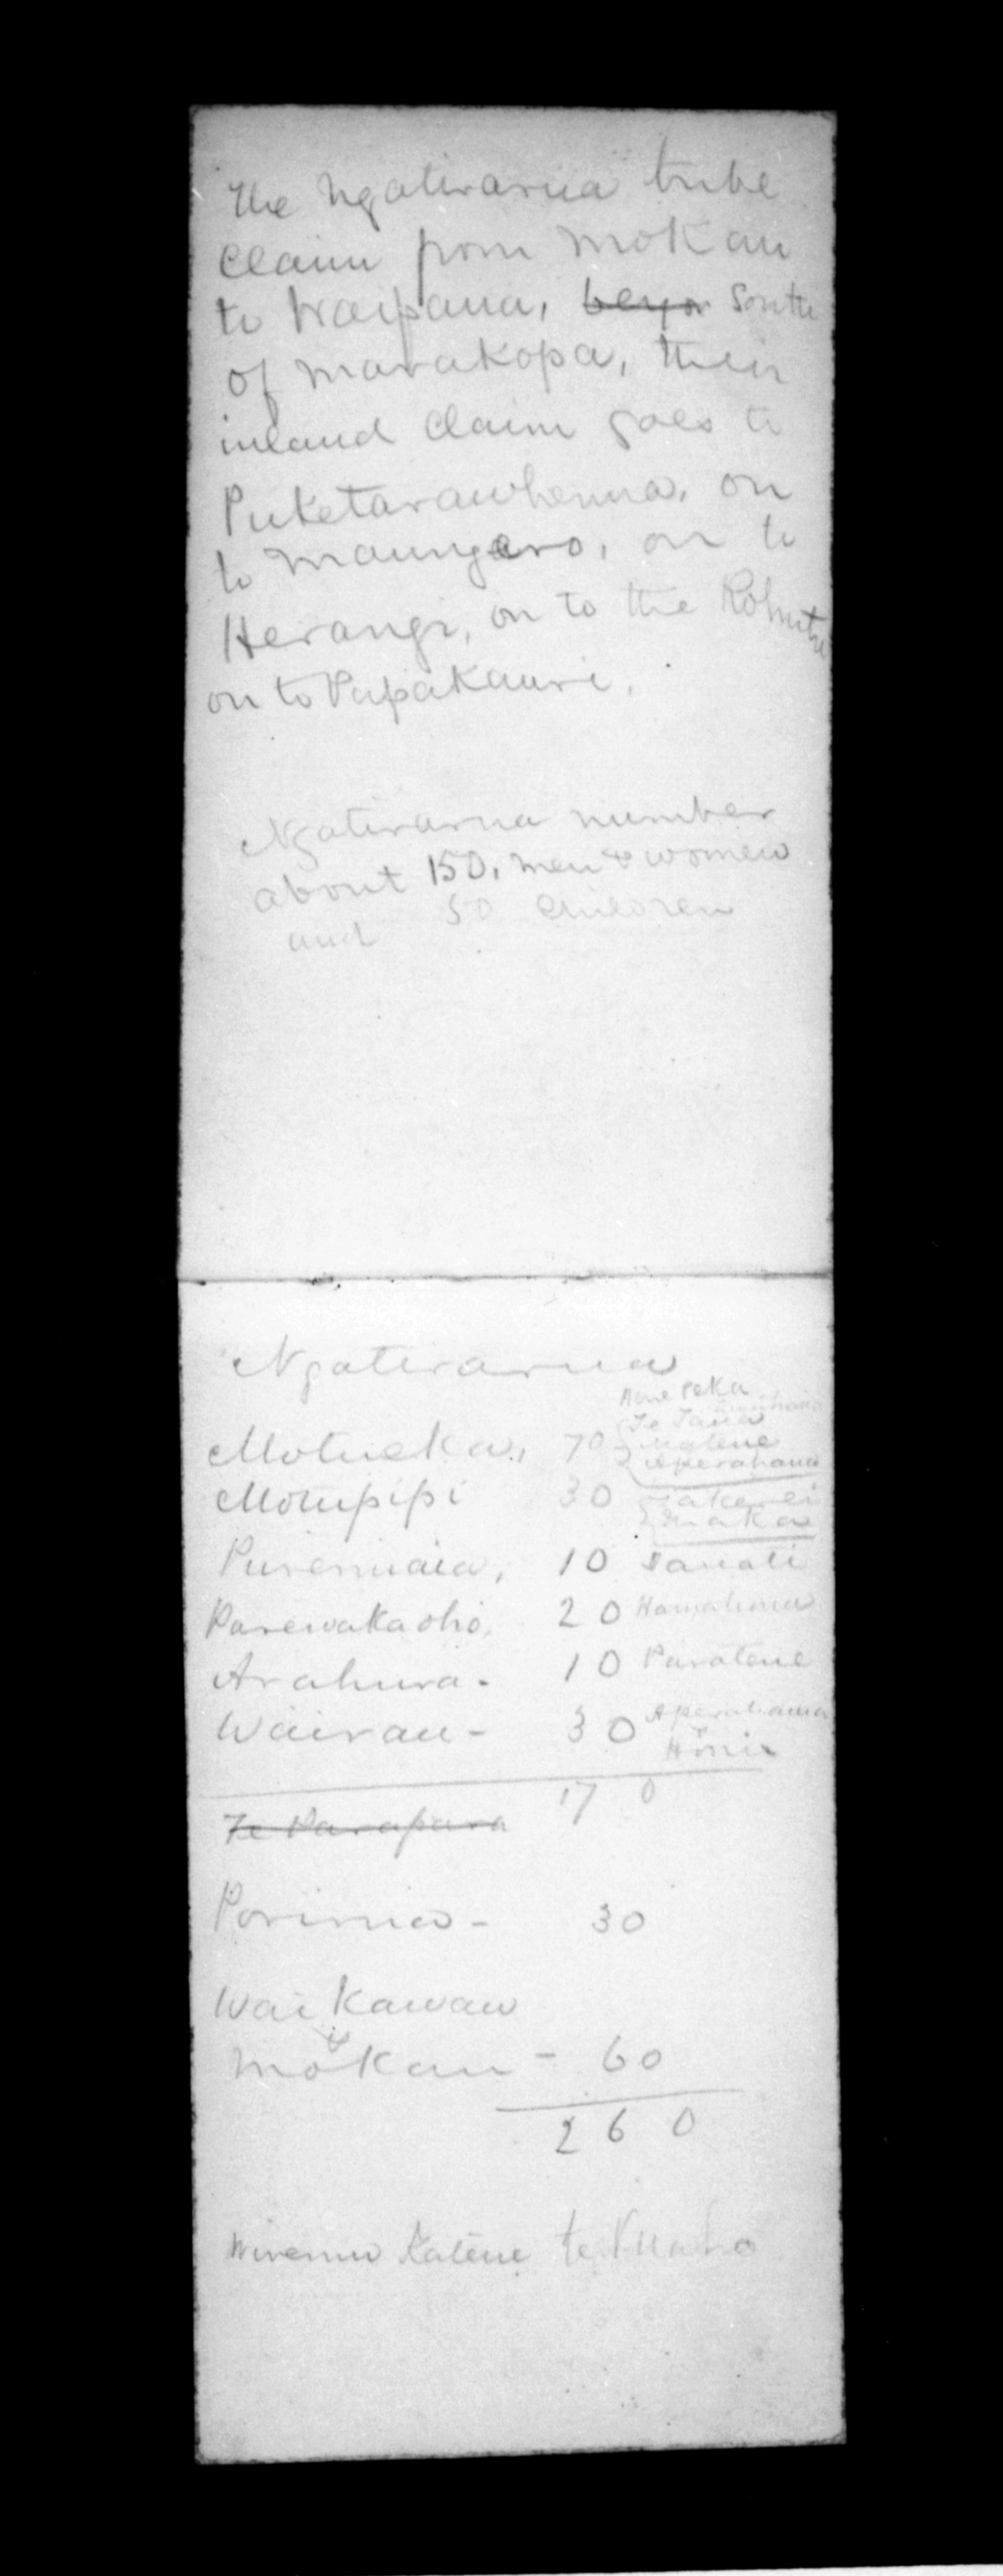 The Ngatirarua tribe
claim from Mokau
to Waipaua, beyon South
of Marakopa, their
inland claim goes to
Puketarawhenua, on
to Maungaro, on to
Herangi, on to the
on to Papakauri.
Ngatirarua number
about 150, men & women
and 50 children
Ngatirarua
Motueka, 70 Te Tana
Aperahama
Motupipi 30
Maka
Puremaia, 10
Parewakaoho, 20
Arahura. 10 Paratene
Wairau - 30 Aperahama
170
Te Parapara
Porirua - 30
Wai Kawau
&
Mokau - 60
260
Wiremu Katene te